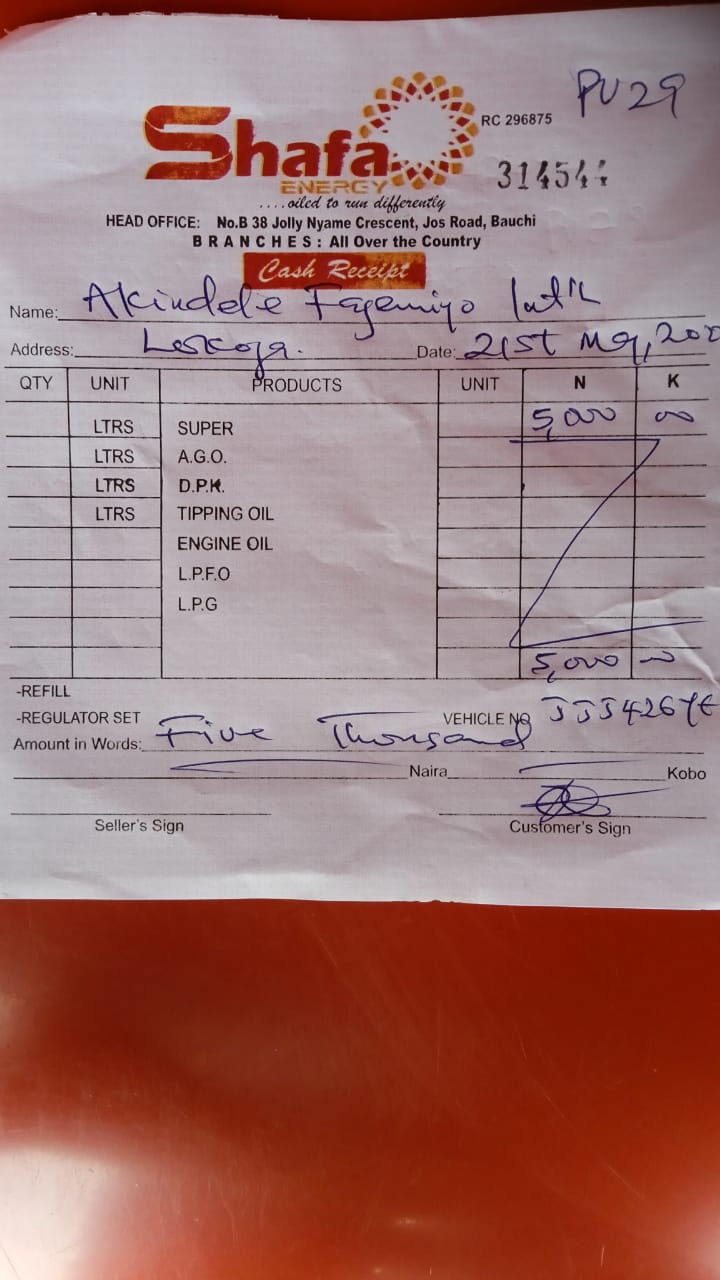 PU 29
Shafa
ENERGY
RC 296875
314544
....oiled to run differently
HEAD OFFICE: No.B 38 Jolly Nyame Crescent, Jos Road, Bauchi
BRANCHES: All Over the Country
Cash Receipt
Name: Akindele Fagemiyo Int'l
Address: Lokoja. Date: 21st May, 202
QTY UNIT PRODUCTS UNIT N K
LTRS SUPER 5,000 00
LTRS A.G.O.
LTRS D.P.K.
LTRS TIPPING OIL
ENGINE OIL
L.P.F.O
L.P.G
5,000 00
-REFILL
-REGULATOR SET VEHICLE NO JJJ426YE
Amount in Words: Five Thousand
Naira Kobo
Seller's Sign Customer's Sign